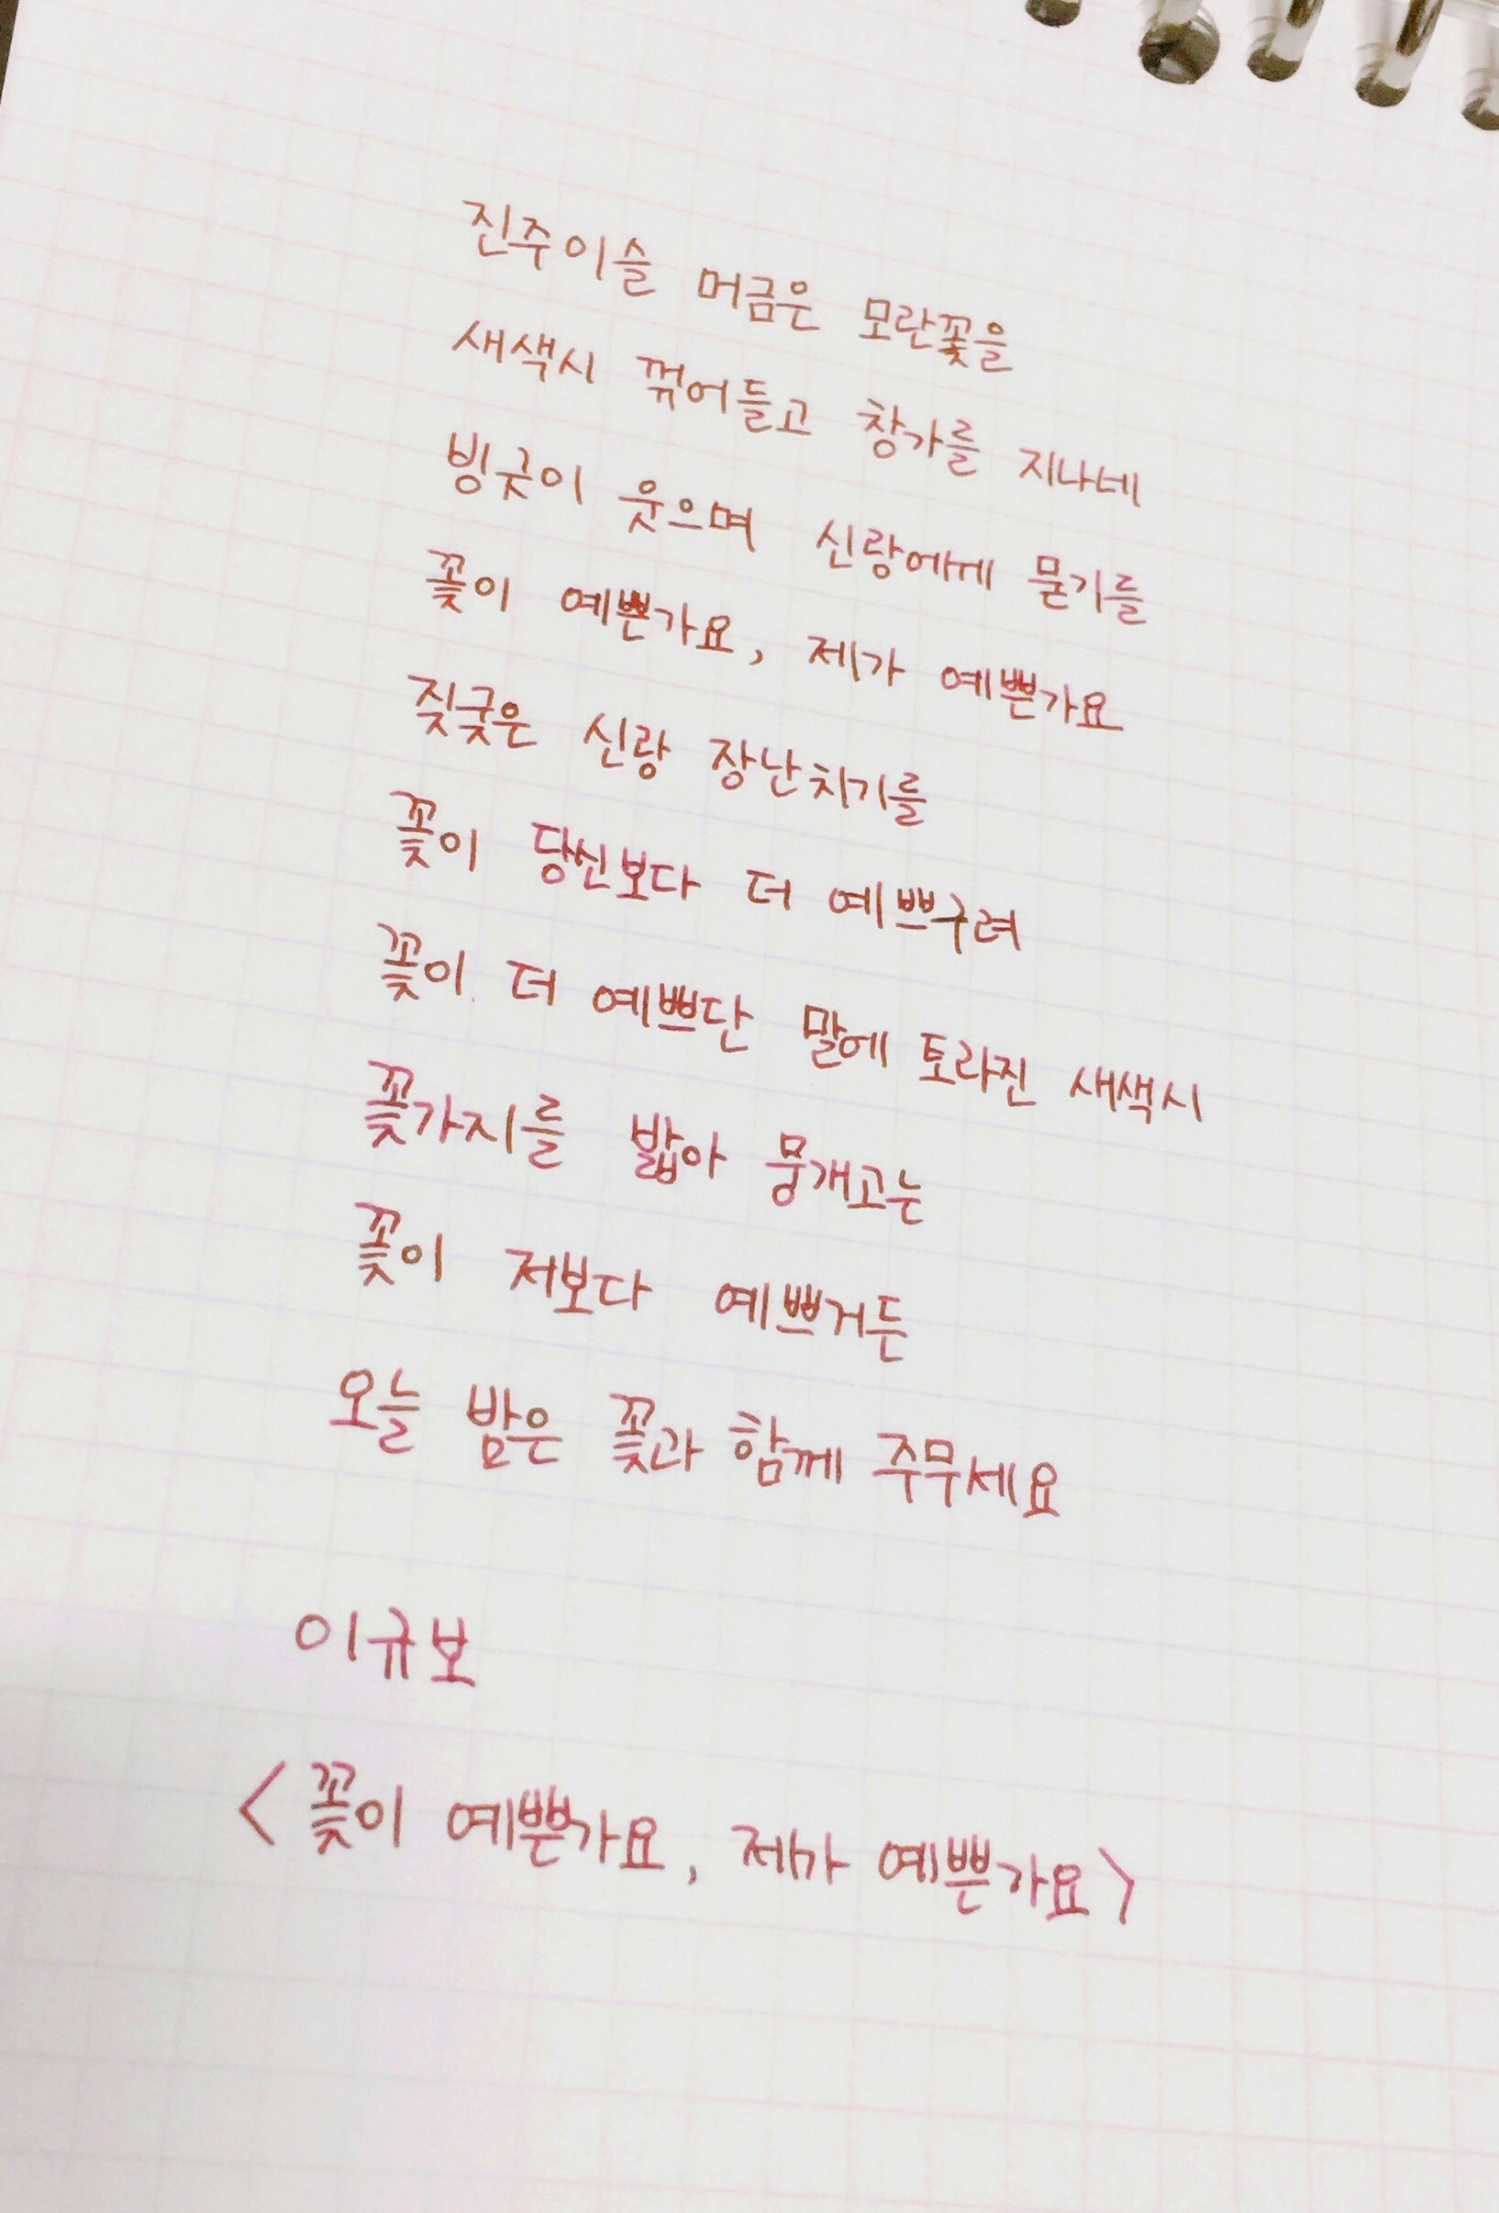 진주이슬 머금은 모란꽃을
새색시 꺾어들고 창가를 지나네
빙긋이 웃으며 신랑에게 묻기를
꽃이 예쁜가요, 제가 예쁜가요
짖궂은 신랑 장난치기를
꽃이 당신보다 더 예쁘구려
꽃이 더 예쁘단 말에 토라진 새색시
꽃가지를 밟아 뭉개고는
꽃이 저보다 예쁘거든
오늘 밤은 꽃과 함께 주무세요
이규보
<꽃이 예쁜가요, 제가 예쁜가요>